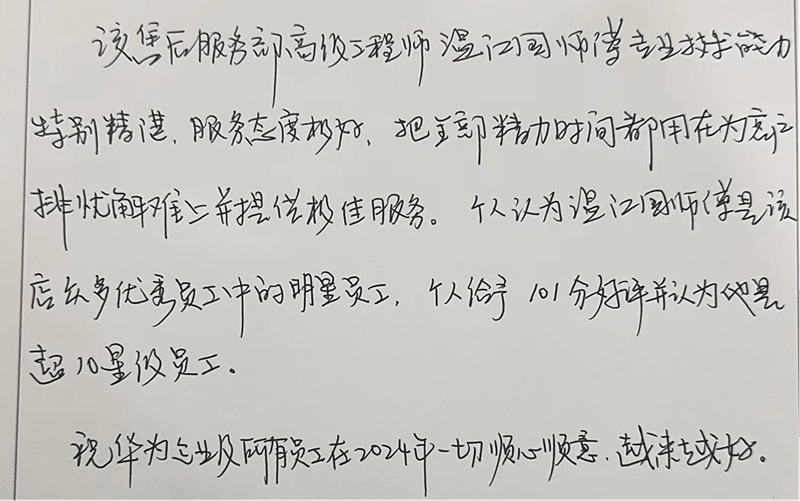 该售后服务部高级工程师温江国师傅专业技术能力
特别精湛，服务态度极好，把全部精力时间都用在为客户
排忧解难上并提供极佳服务。个人认为温江国师傅是该
店众多优秀员工中的明星员工，个人给予101分好评并认为他是
超10星级员工。
祝华为企业及所有员工在2024年一切顺心顺意，越来越好。